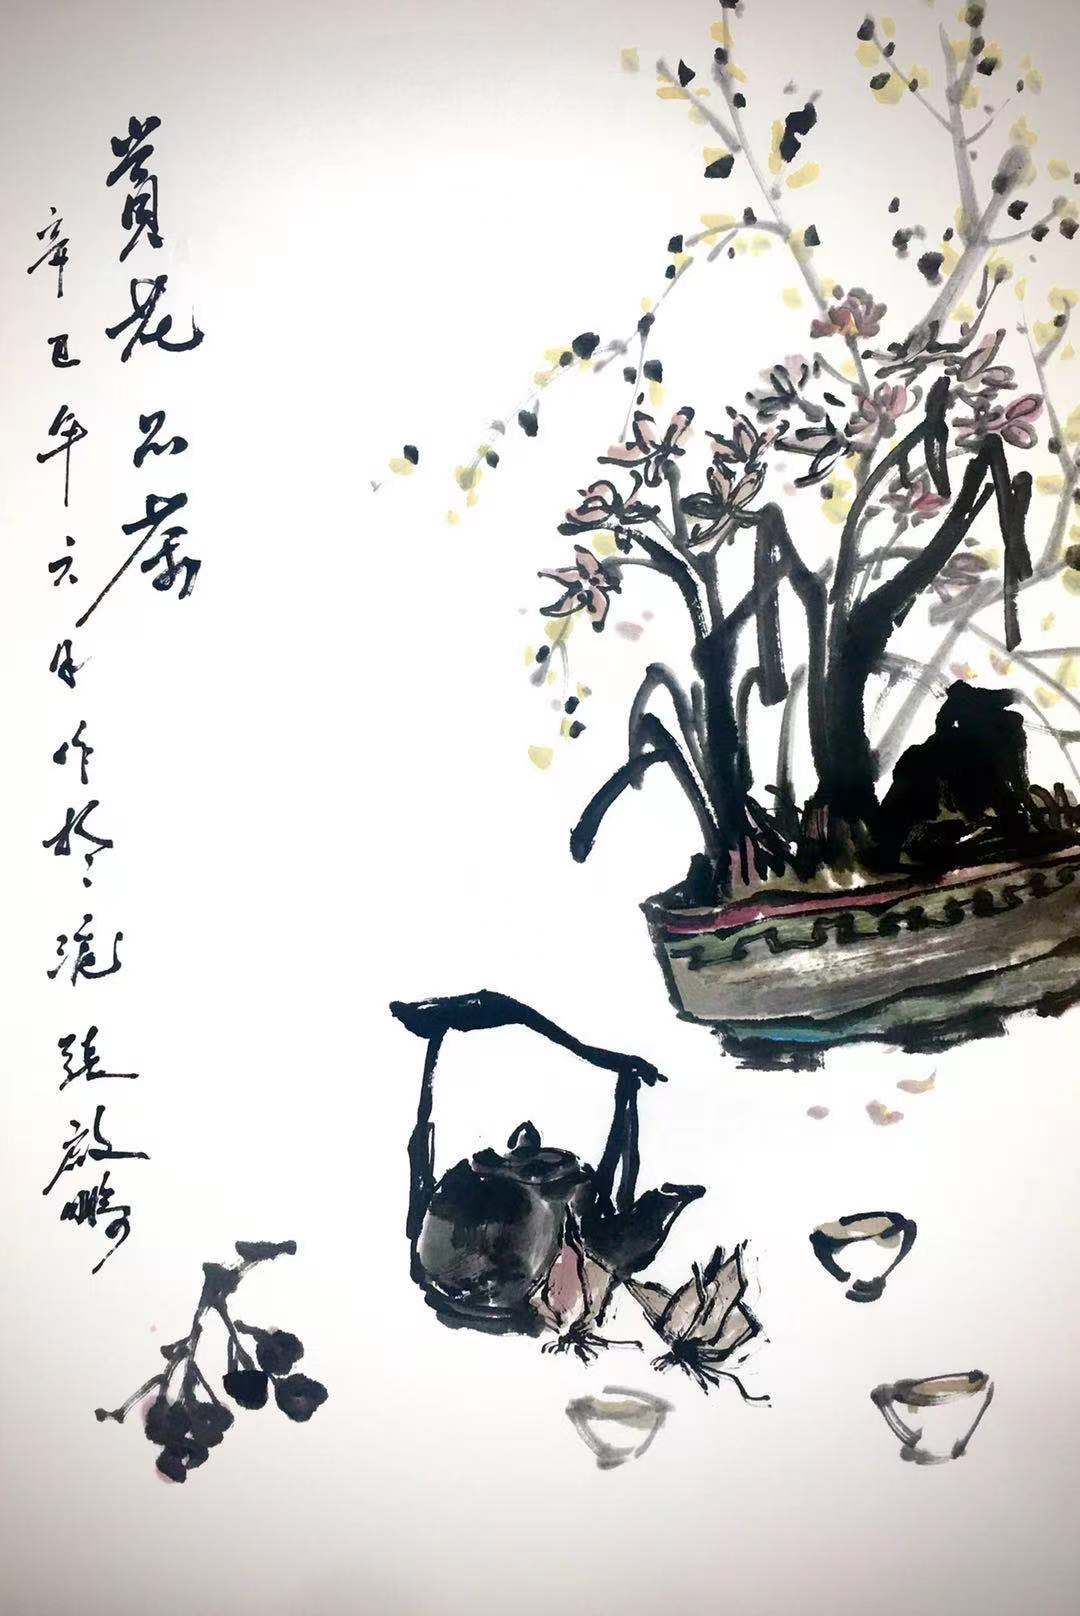 賞花品茶
辛巳年六月作於滬 張啟鵬